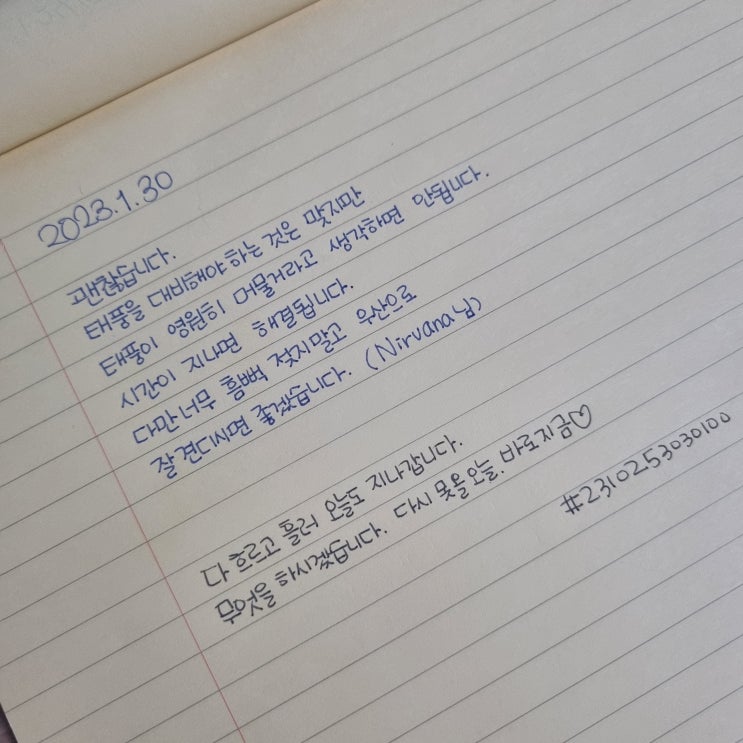 2023.1.30
괜찮습니다.
태풍을 대비해야 하는 것은 맞지만
태풍이 영원히 머물거라고 생각하면 안됩니다.
시간이 지나면 해결됩니다.
다만 너무 흠뻑 젖지말고 우산으로
잘 견디시면 좋겠습니다. (Nirvana님)
다 흐르고 흘러 오늘도 지나갑니다.
무엇을 하시겠습니까. 다시 못올 오늘. 바로지금♡
#2310253030100